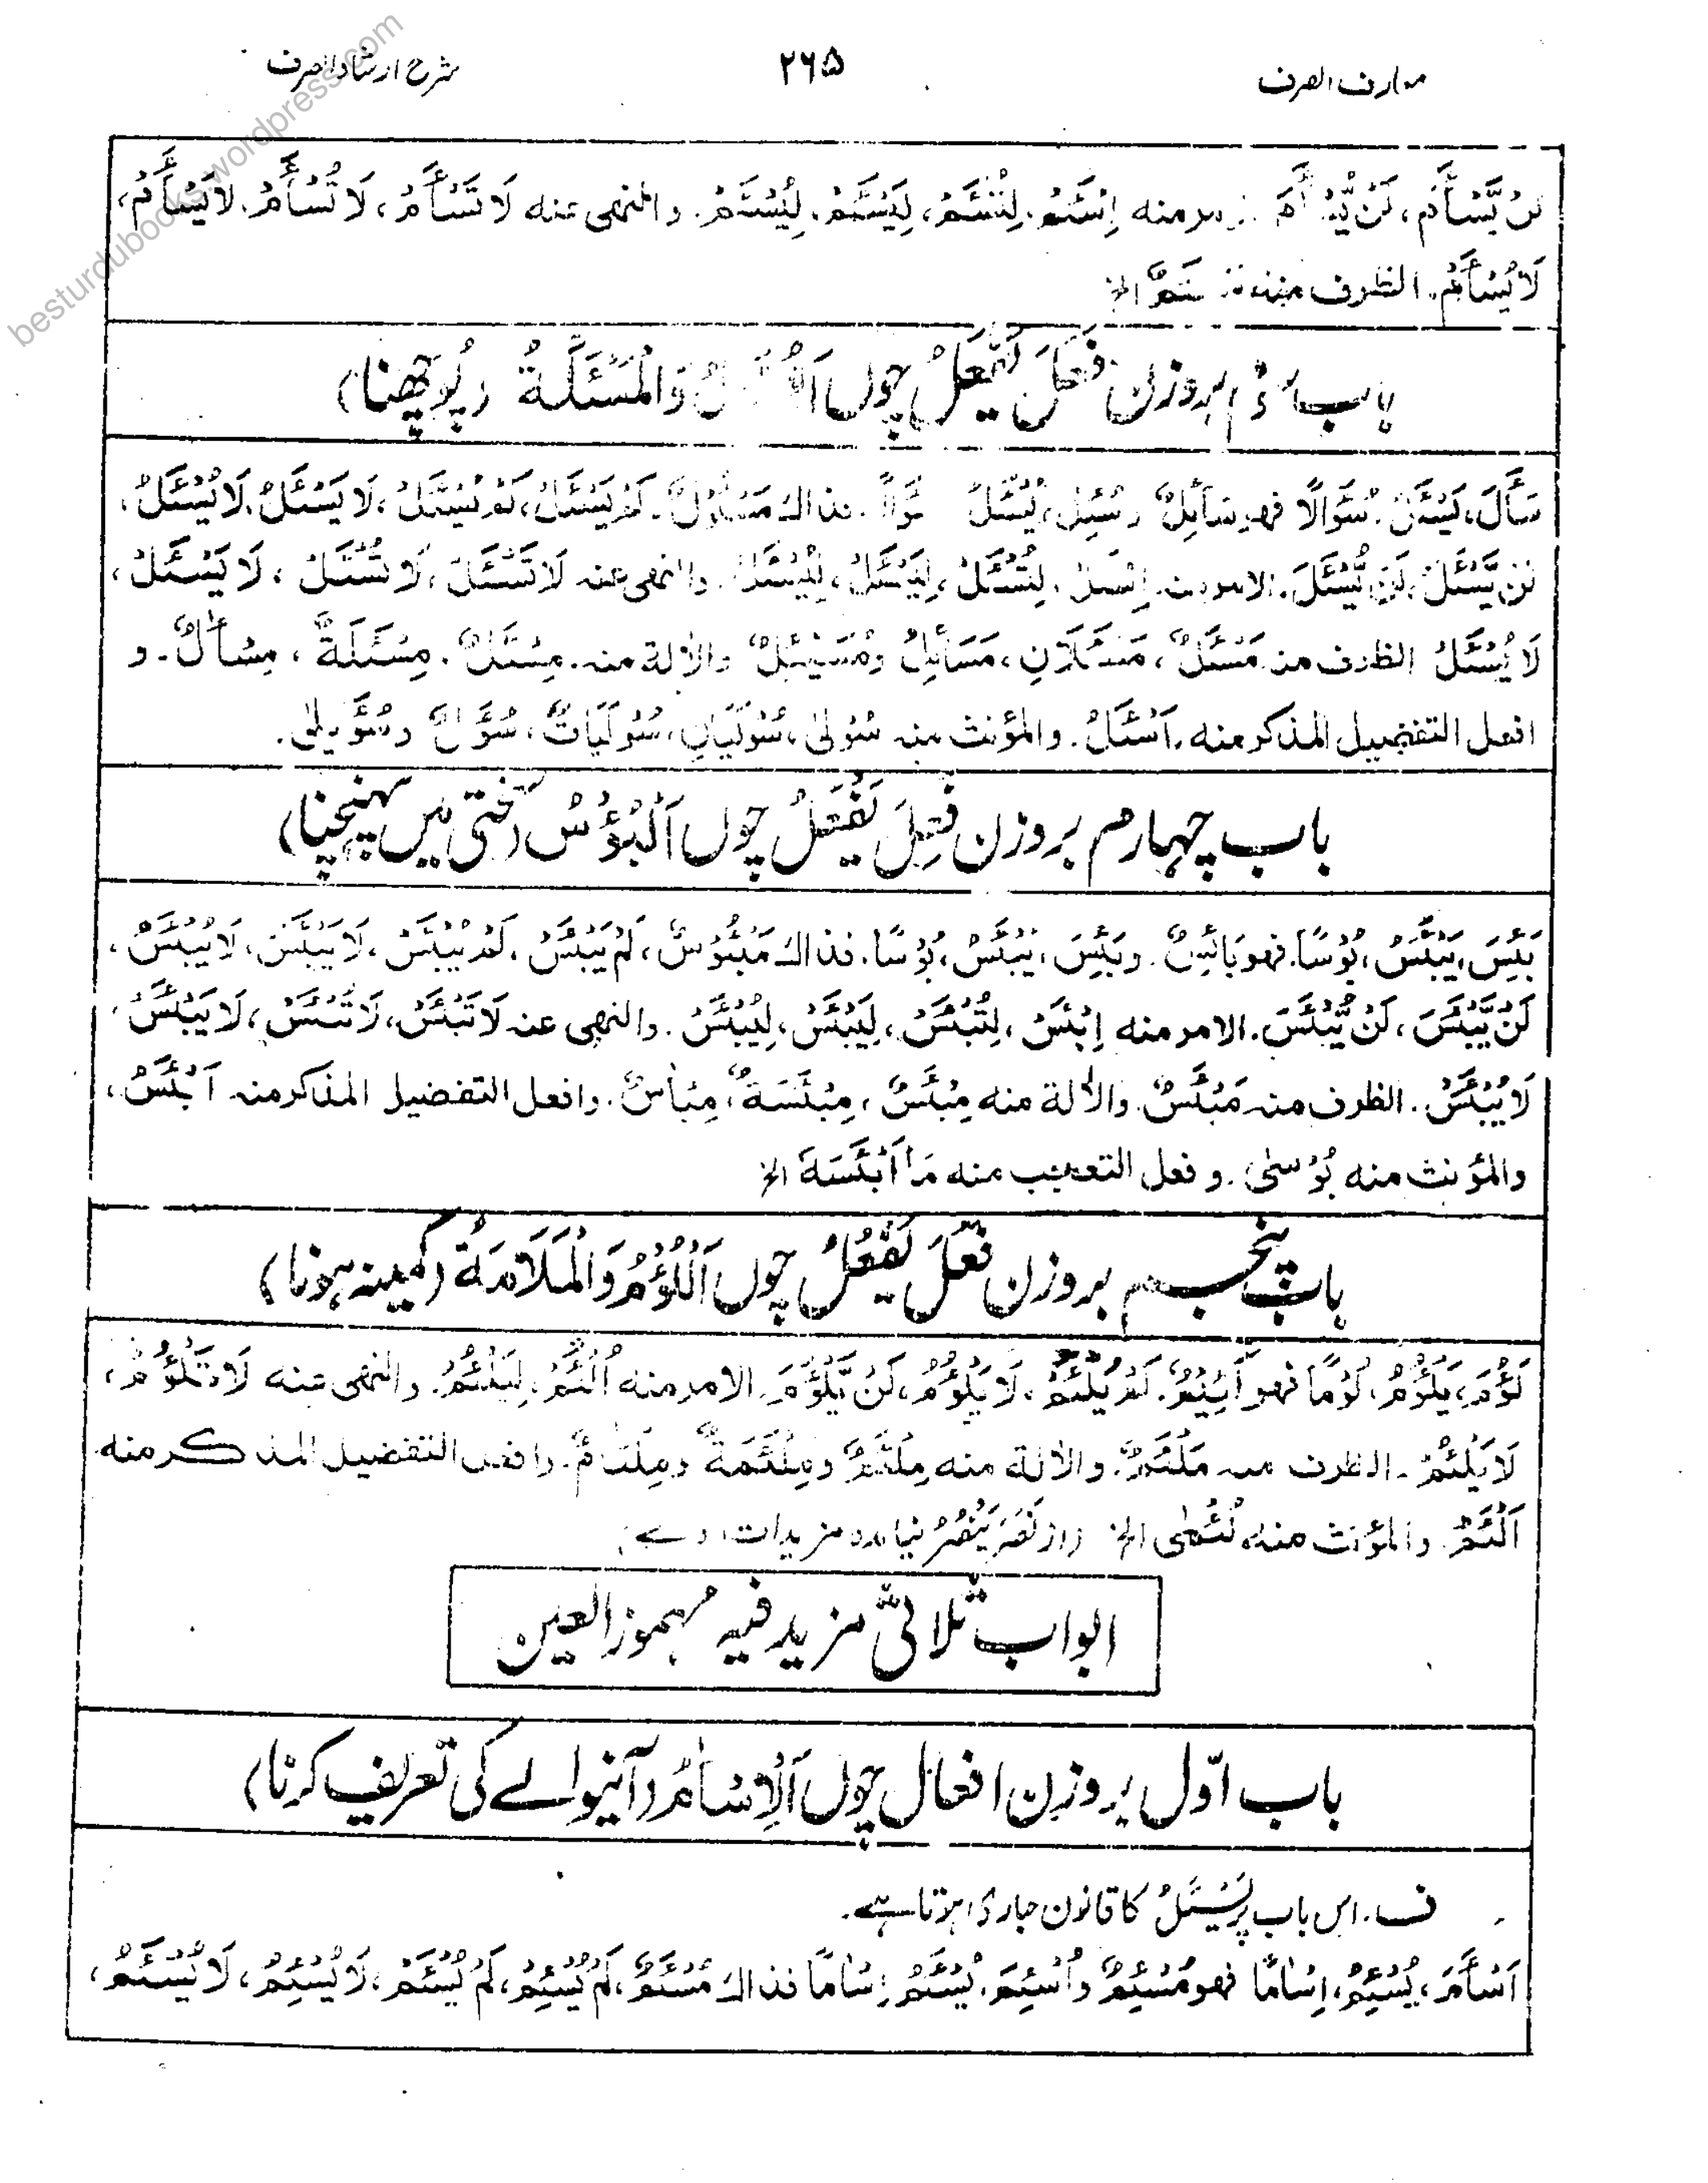 معارف الصرف
۲۶۵
شرح ارشاد الصرف
لَنْ يَّسْأَمَ، لَنْ يُّسْأَمَ منه اِسْئَمْ. لِتُسْئَمْ، لِيَسْئَمْ. لِيُسْئَمْ. والنهى عنه لَا تَسْأَمْ، لَا تُسْأَمْ. لَا يَسْأَمْ،
لَا يُسْأَمْ. الظرف منه الخ
باب بروزن فَعَلَ يَفْعَلُ چوں وَالْمَسْئَلَةُ (پوچھنا)
سَأَلَ، يَسْئَلُ. سُؤَالًا فهو سَائِلٌ وسُئِلَ، يُسْئَلُ فذاك مَسْئُوْلٌ. لَمْ يَسْئَلْ، لَمْ يُسْئَلْ، لَا يَسْئَلُ. لَا يُسْئَلُ،
لَنْ يَّسْئَلَ، لَنْ يُّسْئَلَ. الامر منه اِسْئَلْ. لِتُسْئَلْ، لِيَسْئَلْ، لِيُسْئَلْ. والنهى عنه لَا تَسْئَلْ، لَا تُسْئَلْ، لَا يَسْئَلْ،
لَا يُسْئَلْ الظرف منه مَسْئَلٌ، مَسْئَلَانِ، مَسَائِلُ ومُسَيْئِلٌ والالة منه. مِسْئَلٌ. مِسْئَلَةٌ، مِسْاٰلٌ. و
افعل التفضيل المذكر منه. اَسْئَلُ. والمؤنث منه سُؤْلٰى، سُؤْلَيَانِ، سُؤْلَيَاتٌ، سُؤَلٌ وسُؤَيْلٰى.
باب چہارم بروزن فَعِلَ يَفْعَلُ چوں اَلْبُؤْسُ (سختی میں پہنچنا)
بَئِسَ، يَبْئَسُ، بُوْسًا. فهو بَائِسٌ. وبُئِسَ، يُبْئَسُ، بُوْسًا. فذاك مَبْئُوْسٌ، لَمْ يَبْئَسْ. لَمْ يُبْئَسْ، لَا يَبْئَسُ، لَا يُبْئَسُ،
لَنْ يَّبْئَسَ، لَنْ يُّبْئَسَ. الامر منه اِبْئَسْ، لِتُبْئَسْ، لِيَبْئَسْ، لِيُبْئَسْ. والنهى عنه لَا تَبْئَسْ، لَا تُبْئَسْ، لَا يَبْئَسْ،
لَا يُبْئَسْ. الظرف منه مَبْئَسٌ. والالة منه مِبْئَسٌ، مِبْئَسَةٌ، مِبْاٰسٌ. وافعل التفضيل المذكر منه اَبْئَسُ،
والمؤنث منه بُوْسٰى. و فعل التعجب منه مَا اَبْئَسَهٗ الخ
باب پنجم بروزن فَعُلَ يَفْعُلُ چوں اَللُّؤْمُ وَالْمَلَامَةُ (کمینہ ہونا)
لَؤُمَ، يَلْؤُمُ، لُوْمًا فهو لَئِيْمٌ. لَمْ يَلْئُمْ، لَا يَلْؤُمُ، لَنْ يَّلْؤُمَ. الامر منه اُلْئُمْ. لِيَلْئُمْ. والنهى عنه لَا تَلْؤُمْ،
لَا يَلْئُمْ. الظرف منه مَلْئَمٌ. والالة منه مِلْئَمٌ ومِلْئَمَةٌ ومِلْئَامٌ. وافعل التفضيل المذكر منه
اَلْئَمُ. والمؤنث منه لُئْمٰى الخ (از نَصَرَ يَنْصُرُ نیامده مزیدات وے)
ابواب ثلاثی مزید فیہ مہموز العین
باب اوّل بروزن افعال چوں اَلْاِسْاٰمُ (آنیوالے کی تعریف کرنا)
ف. اس باب پر يَسْئَلُ کا قانون جاری ہوتا ہے.
اَسْأَمَ، يُسْئِمُ، اِسْاٰمًا فهو مُسْئِمٌ واُسْئِمَ. يُسْئَمُ اِسْاٰمًا فذاك مُسْئَمٌ، لَمْ يُسْئِمْ، لَمْ يُسْئَمْ. لَا يُسْئِمُ، لَا يُسْئَمُ،
besturdubooks.wordpress.com